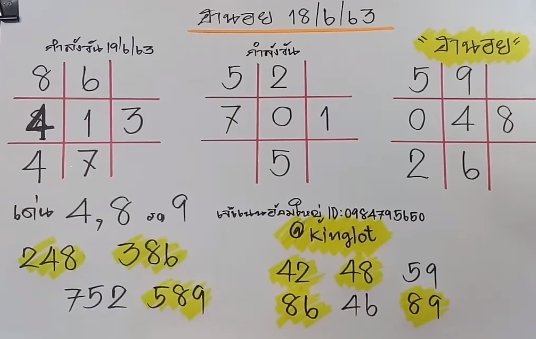 ฮานอย 18/6/63
กำลังวัน 19/6/63
8 6
4 1 3
4 7
กำลังวัน
5 2
7 0 1
5
"ฮานอย"
5 9
0 4 8
2 6
เด่น 4,8 รอง 9
248 386
752 589
ID:0984795650
@Kinglot
42 48 59
86 46 89